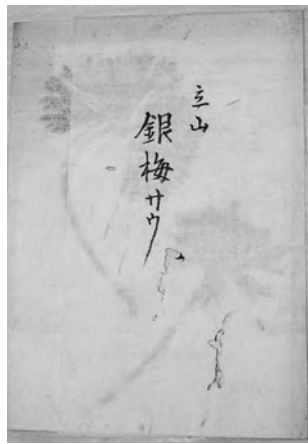 立山
銀梅サウ